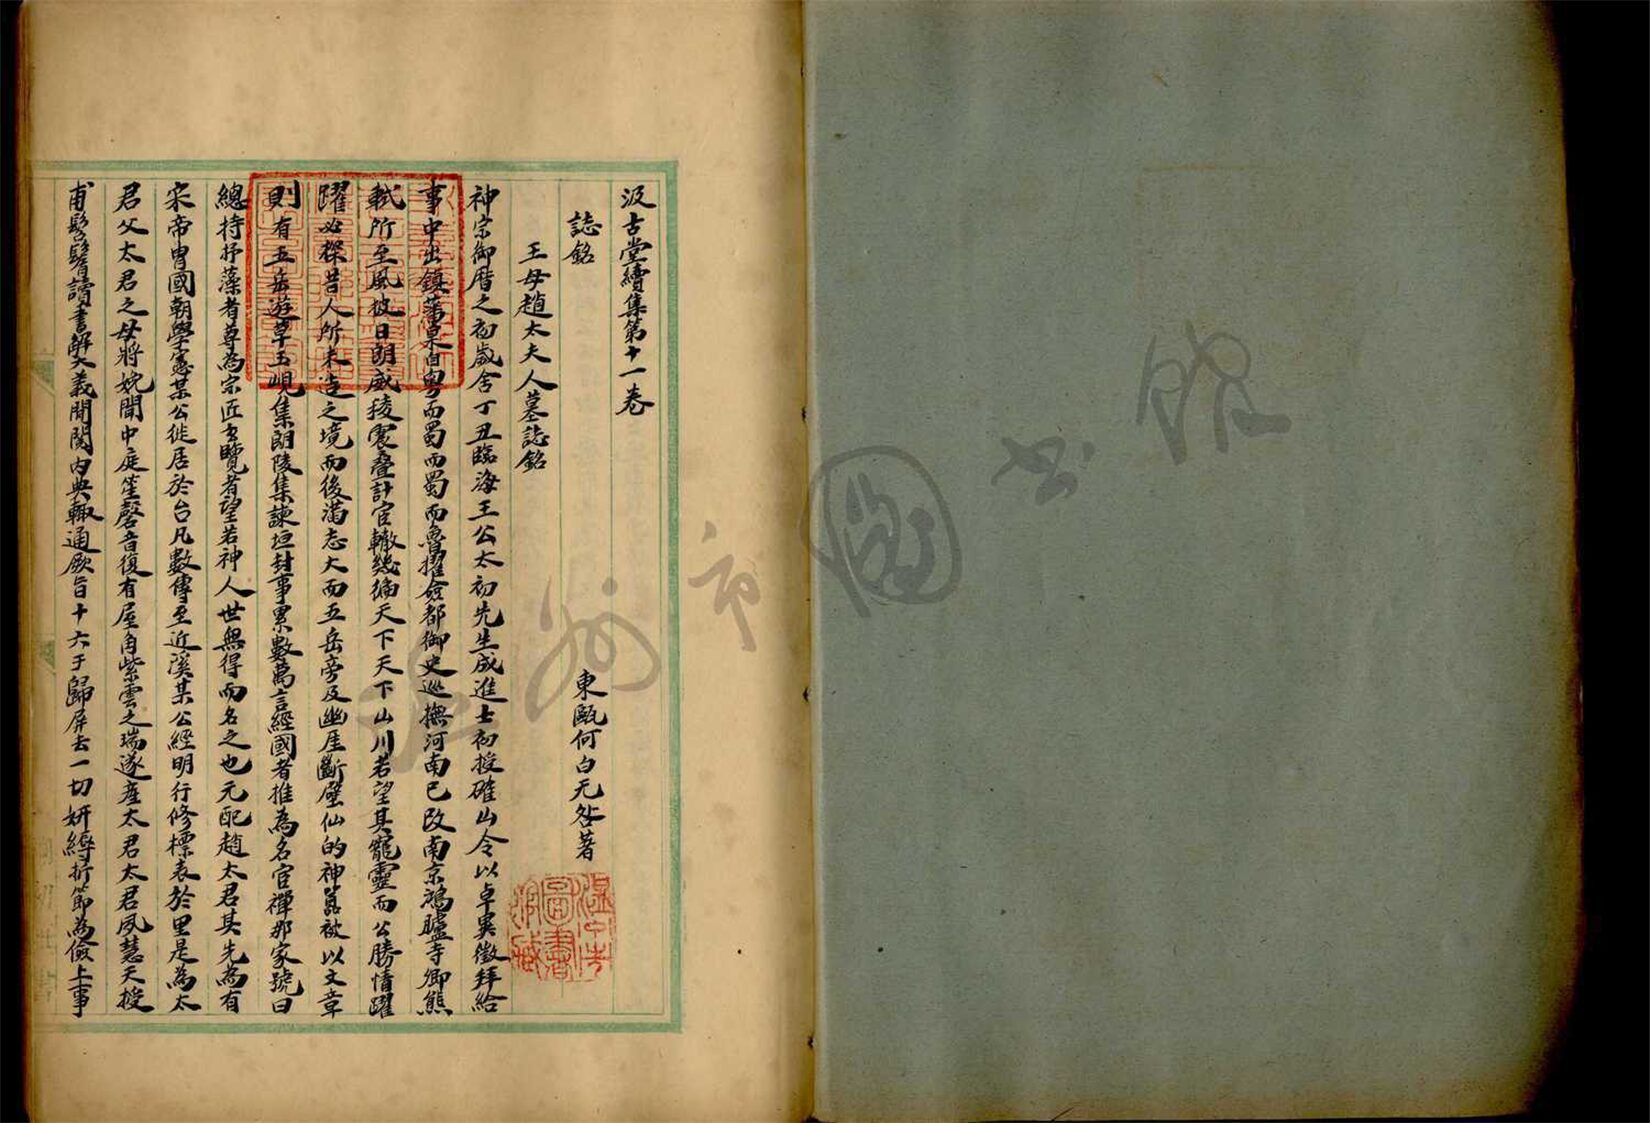 汲古堂續集第十一卷
東甌何白无咎著
誌銘
王母趙太夫人墓誌銘
神宗御曆之初歲舍丁丑臨海王公太初先生成進士初授確山令以卓異徵拜給
事中出鎮藩臬自粤而蜀而蜀而魯擢僉都御史巡撫河南已改南京鴻臚寺卿熊
軾所至風披日朗威稜震疊計宦轍幾徧天下天下山川若望其寵靈而公勝情躍
躍必探昔人所未造之境而後滿志大而五岳旁及幽厓斷壁仙的神嚣被以文章
則有五岳遊草玉峴集朗陵集諫垣封事累數萬言經國者推為名宦禪那家號曰
總持抒藻者尊為宗匠玄覽者望若神人世無得而名之也元配趙太君其先為有
宋帝胄國朝學憲某公徙居於台凡數傳至近溪某公經明行修標表於里是為太
君父太君之母將娩聞中庭笙磬音復有屋角紫雲之瑞遂産太君太君夙慧天授
甫髫髻讀書解大義間閱内典輒通厥旨十六于歸屏去一切妍縟折節為儉上事
溫州市圖書館藏
溫州市圖書館